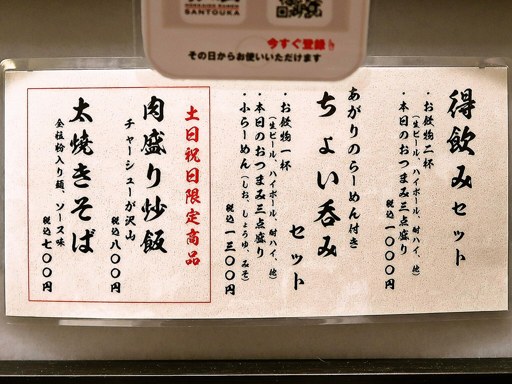 HOKKAIDO RAMEN
SANTOUKA
今すぐ登録
その日からお使いいただけます
得飲みセット
・お飲物二杯
(生ビール、ハイボール、酎ハイ、他)
・本日のおつまみ三点盛り
税込一〇〇〇円
あがりのらーめん付き
ちょい呑みセット
・お飲物一杯
(生ビール、ハイボール、酎ハイ、他)
・本日のおつまみ三点盛り
・小らーめん(しお、しょうゆ、みそ)
税込一三〇〇円
土日祝日限定商品
肉盛り炒飯
チャーシューが沢山
税込八〇〇円
太焼きそば
全粒粉入り麺、ソース味
税込七〇〇円